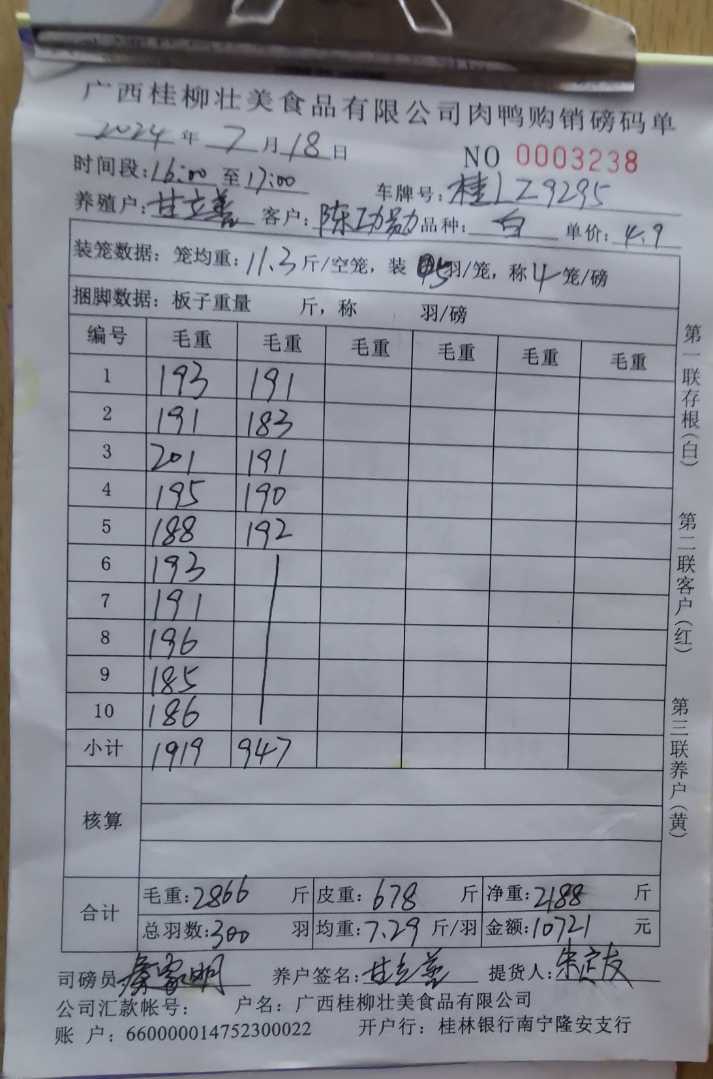 广西桂柳壮美食品有限公司肉鸭购销磅码单
2024 年 7 月 18 日 NO 0003238
时间段:16:00 至 17:00 车牌号:桂LZ9295
养殖户:甘立善 客户:陈功勋 品种:白 单价:4.9
装笼数据:笼均重:11.3斤/空笼,装 5羽/笼,称4笼/磅
捆脚数据:板子重量 斤,称 羽/磅
编号 毛重 毛重 毛重 毛重 毛重 毛重
1 193 191
2 191 183
3 201 191
4 195 190
5 188 192
6 193
7 191
8 196
9 185
10 186
小计 1919 947
核算
合计 毛重:2866 斤 皮重:678 斤 净重:2188 斤
总羽数:300 羽 均重:7.29 斤/羽 金额:10721 元
司磅员 秦家明 养户签名:甘立善 提货人:朱定友
公司汇款帐号: 户名:广西桂柳壮美食品有限公司
账 户:660000014752300022 开户行:桂林银行南宁隆安支行
第一联存根(白) 第二联客户(红) 第三联养户(黄)